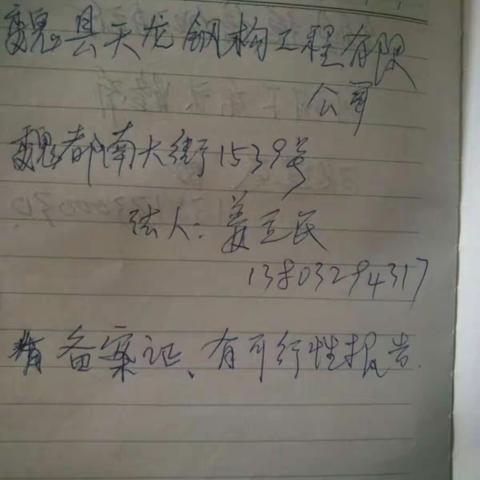 魏县天龙钢构工程有限
公司
魏都南大街1539号
法人：姜立民
13803294317
有备案证、有可行性报告.